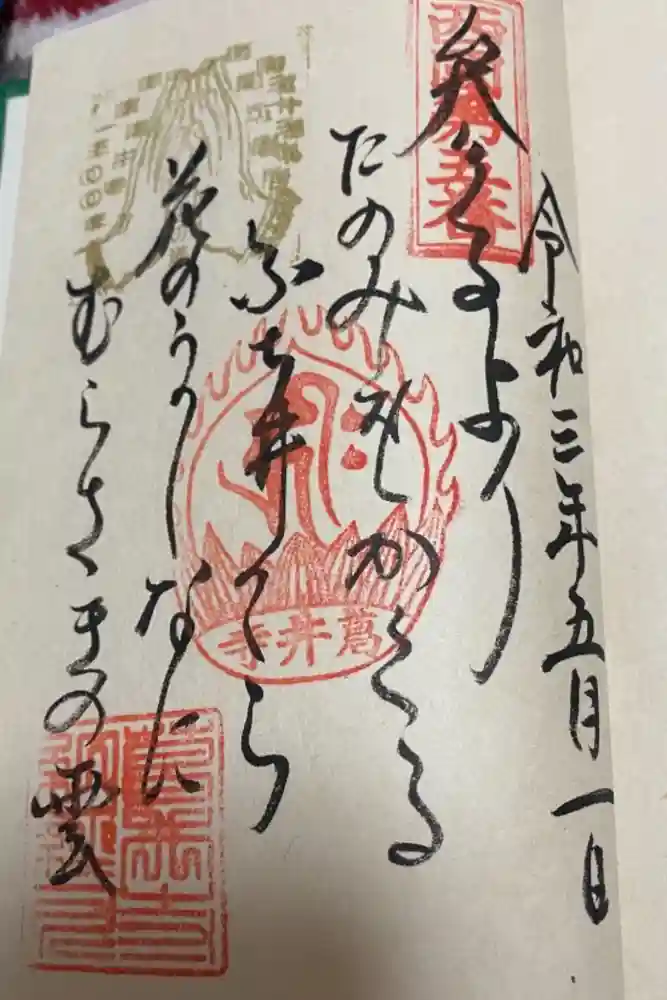 西國第五番
令和三年五月一日
参るより
たのみをかくる
ふち井てら
花のうてなに
むらさきの雲
葛井寺